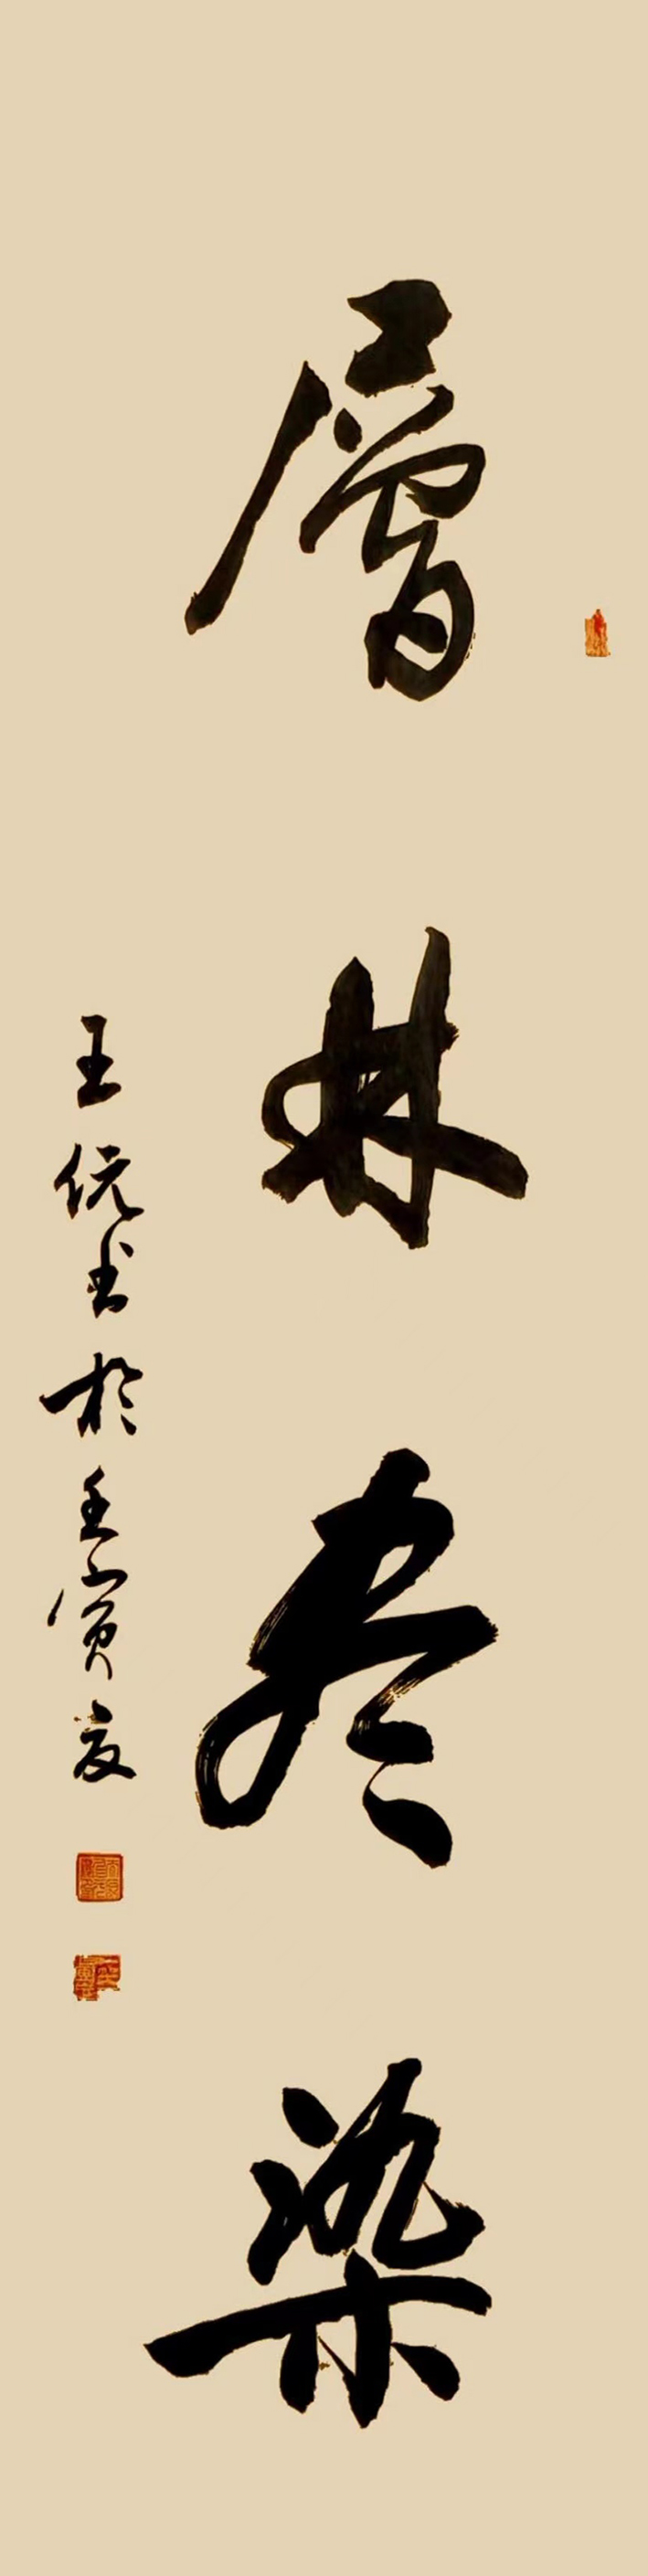 層林尽染
王侃书於壬寅夏